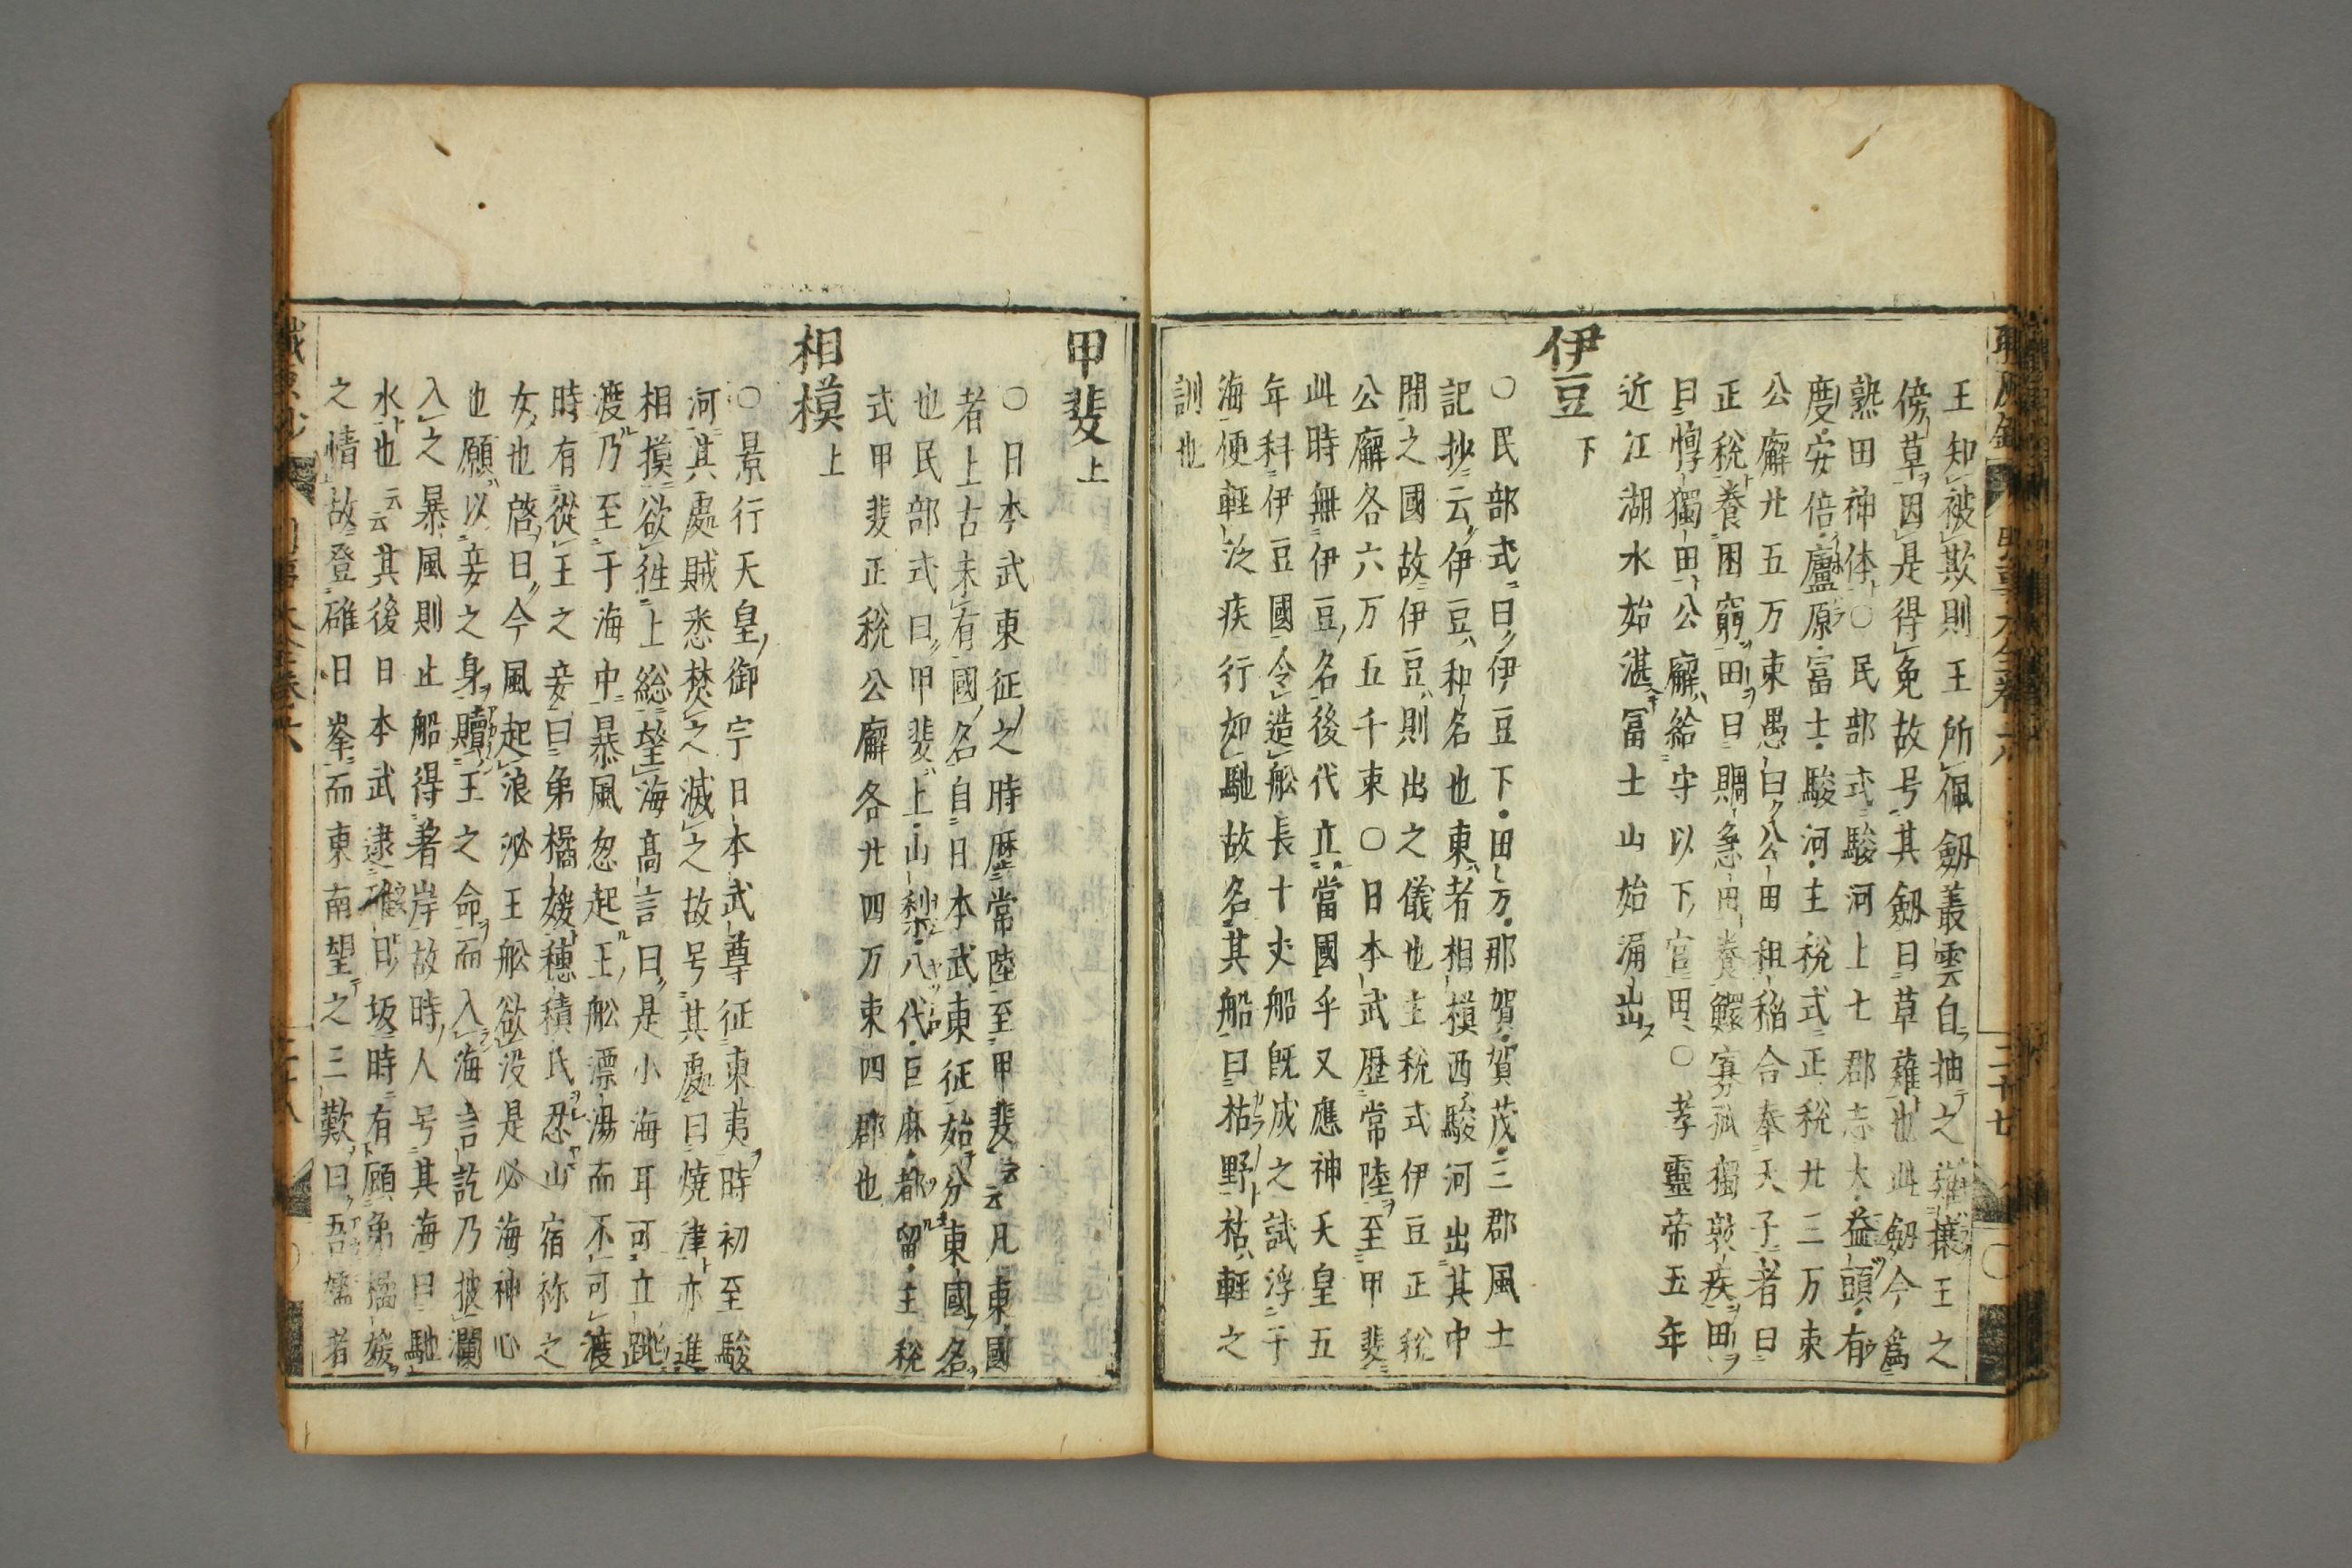 王知被欺則王所佩劔䕺雲自抽之薙攘王之
傍草因是得免故号其劔曰草薙也此劔今爲
熟田神体○民部式駿河上七郡志太益頭有
度安倍廬原冨士駿河主税式正税廾三万束
公廨廾五万束愚曰公田租稲合奉天子者曰
正税養困窮田曰賜急田養鰥寡孤獨敦疾田
曰惸獨田公廨給守以下官田○孝靈帝五年
近江湖水始湛冨士山始涌出
伊豆下
○民部式曰伊豆下田方那賀賀茂三郡風土
記抄云伊豆和名也東者相模西駿河出其中
間之國故伊豆則出之儀也主税式伊豆正税
公廨各六万五千束○日本武歴常陸至甲斐
此時無伊豆名後代立當國乎又應神天皇五
年科伊豆國令造舩長十丈船既成之試浮于
海便軽泛疾行如馳故名其船曰枯野枯軽之
訓也
甲斐上
○日本武東征之時歴常陸至甲斐云云凡東國
者上古未有國名自日本武東征始分東國名
也民部式曰甲斐上山梨八代巨麻都留主税
式甲斐正税公廨各廾四万束四郡也
相模上
○景行天皇御宇日本武尊征東夷時初至駿
河其處賊悉焚之滅之故号其處曰焼津亦進
相摸欲徃上総望海高言曰是小海耳可立跳
渡乃至于海中暴風忽起王舩漂蕩而不可渡
時有從王之妾曰弟橘媛穂積氏忍山宿祢之
女也啓曰今風起浪泌王舩欲没是必海神心
也願以妾之身贖王之命而入海言訖乃披瀾
入之暴風則止船得著岸故時人号其海曰馳
水也云云其後日本武逮碓日坂時有顧弟橘媛
之情故登碓日峯而東南望之三歎曰吾嬬者